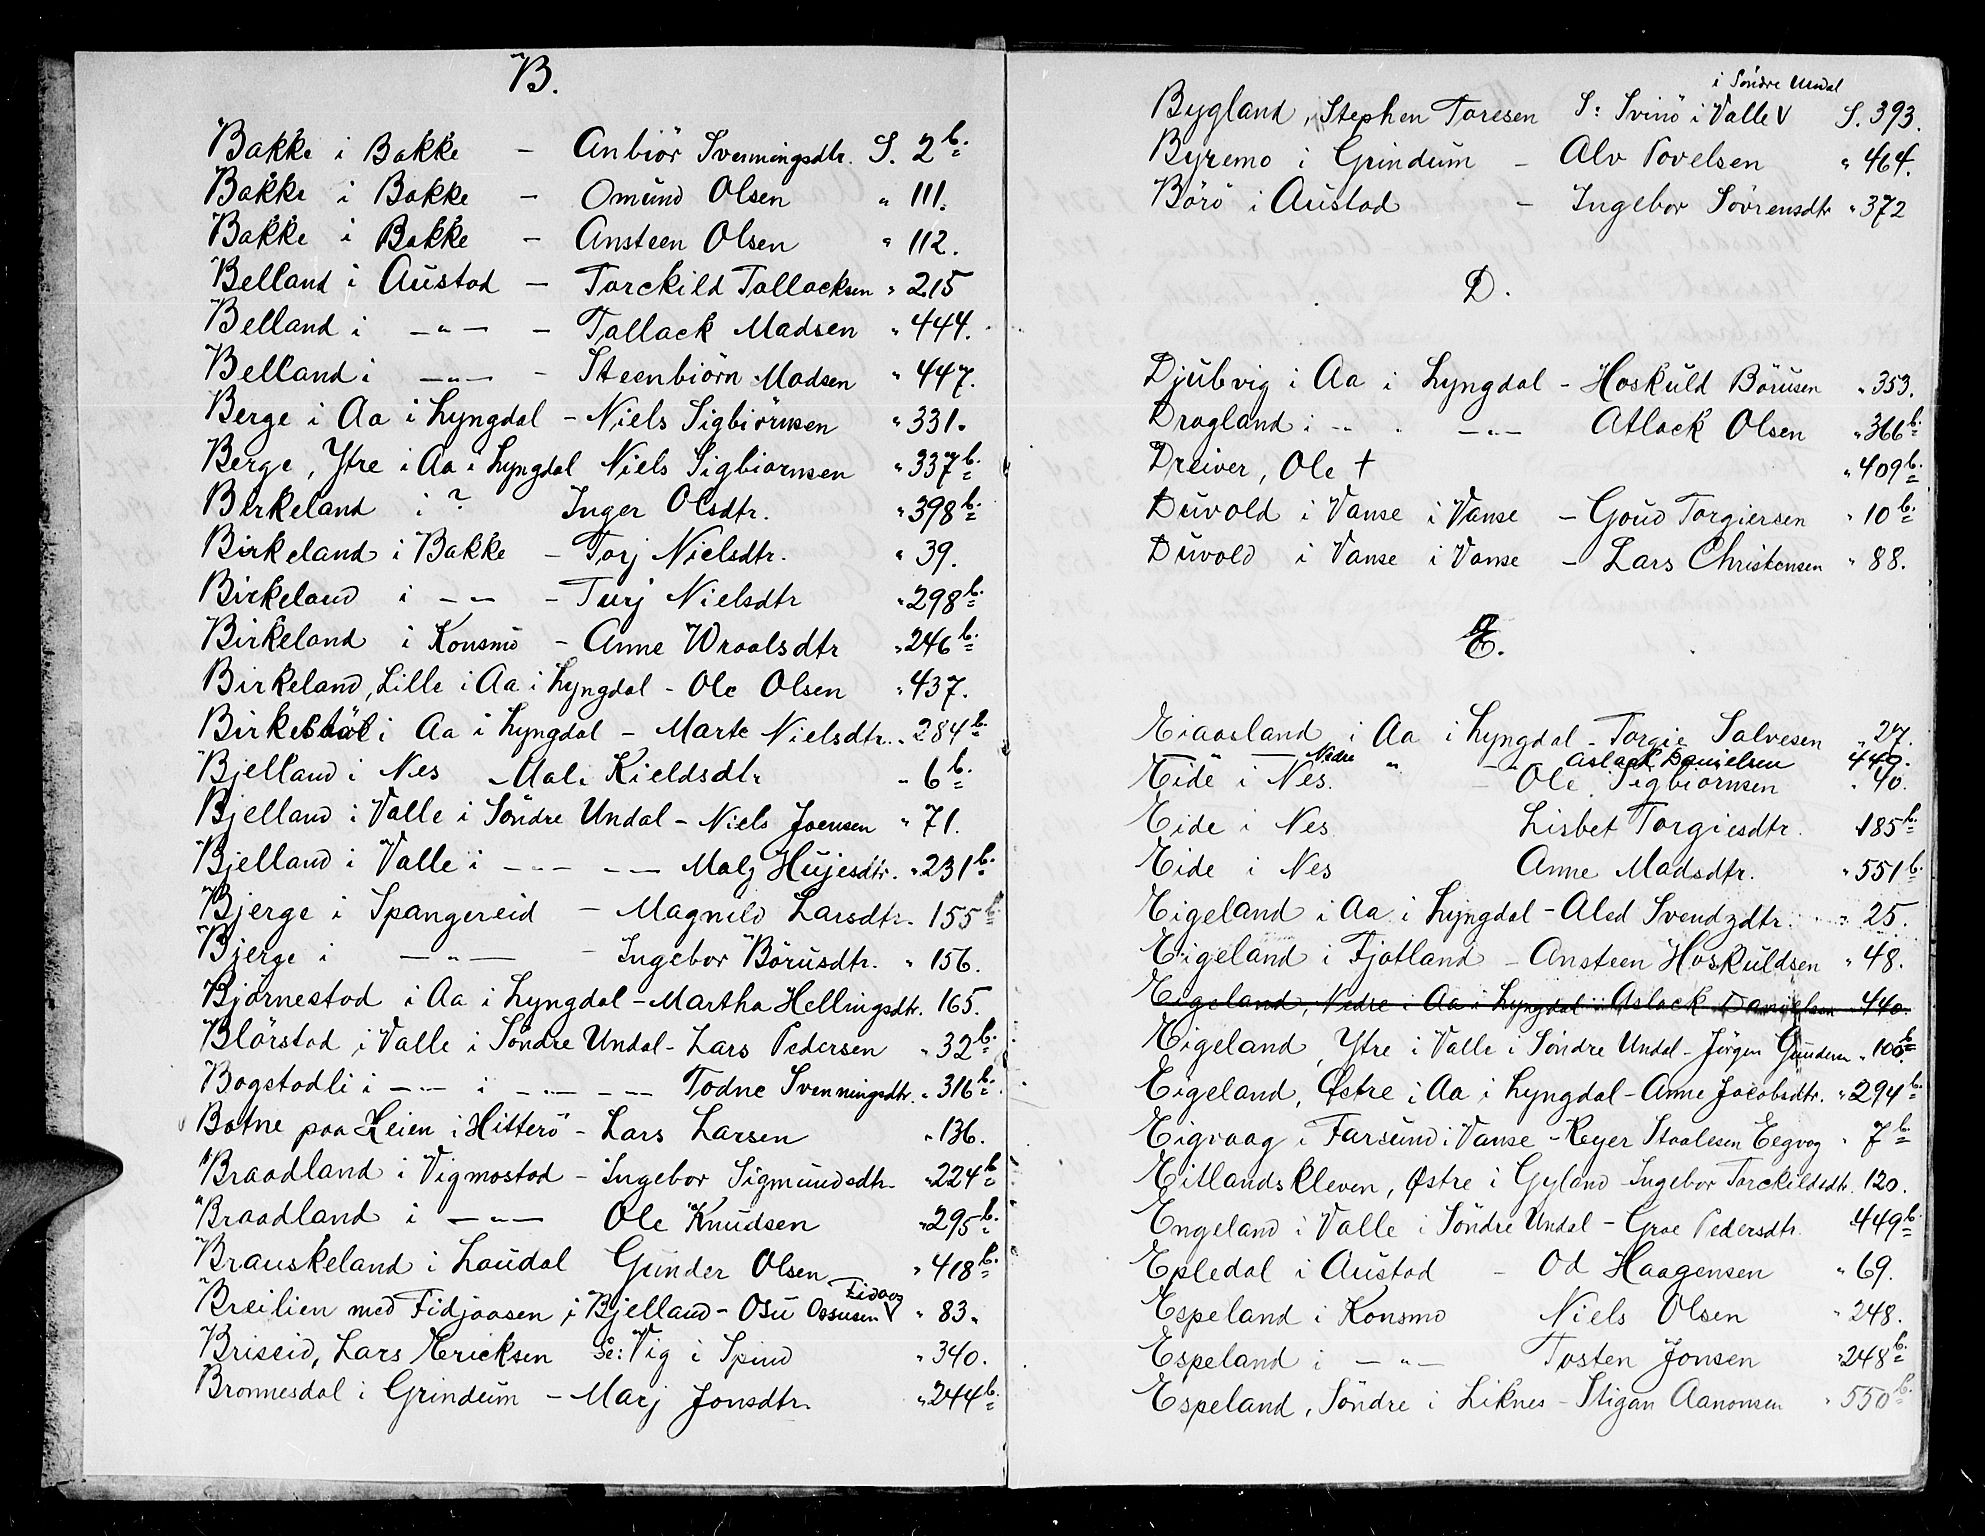 B.
Bakke i Bakke - Anbiör Svenningsdtr. S. 2 b.
Bakke i Bakke - Omund Olsen " 111.
Bakke i Bakke - Ansteen Olsen " 112.
Belland i Austad - Torckild Tallacksen " 215
Belland i -"- - Tallack Madsen " 444.
Belland i -"- - Steenbiörn Madsen " 447.
Berge i Aa i Lyngdal - Niels Sigbiörnsen " 331.
Berge, Ytre i Aa i Lyngdal Niels Sigbiornsen " 337 b.
Birkeland i ? Inger Olsdtr. " 398 b.
Birkeland i Bakke - Torj Nielsdtr. " 39.
Birkeland i -"- - Turj Nielsdtr " 298 b.
Birkeland i Konsmo - Anne Wraalsdtr " 246 b.
Birkeland, Lille i Aa i Lyngdal - Ole Olsen " 437.
Birkestöl i Aa i Lyngdal - Marte Nielsdtr. " 284 b.
Bjelland i Nes - Mali Kieldsdtr " 6 b.
Bjelland i Valle i Söndre Undal - Niels Joensen " 71.
Bjelland i Valle i -"- -"- Malj Hujesdtr. " 231 b.
Bjerge i Spangereid - Magnild Larsdtr. 155 b.
Bjerge i -"- - Ingebor Börusdtr. " 156.
Bjärnestad i Aa i Lyngdal - Martha Hellingsdtr. 165.
Blörstad i Valle i Söndre Undal - Lars Pedersen " 32 b.
Bogstodli i -"- i -"- -"- Todne Svenningsdtr. " 316 b.
Botne paa Heien i Hitterö - Lars Larsen " 136.
Braadland i Vigmostad - Ingebor Sigmundsdtr. " 224 b
Braadland i -"- Ole Knudsen " 295 b.
Brauskeland i Laudal Gunder Olsen " 418 b.
Breilien med Fidjaasen i Bjelland - Osu Ossusen V " 83.
Briseid, Lars Ericksen Se: Vig i Spind " 340.
Bronnesdal i Grindum - Marj Jonsdtr. " 244 b.
i Söndre Undal
Bygland, Stephen Toresen S: Svinö i Valle V S. 393.
Byremo i Grindum - Alv Povelsen " 464.
Börö i Austad - Ingebor Sövrensdtr " 372
D.
Djubvig i Aa i Lyngdal - Hoskuld Börusen " 353.
Dragland i -"- -"- Atlack Olsen " 366 b.
Dreiver, Ole † " 409 b.
Duvold i Vanse i Vanse - Goud Torgiersen " 10 b.
Duvold i Vanse i Vanse - Lars Christensen " 88.
E.
Eiaasland i Aa i Lyngdal - Torgie Salvesen " 27.
— Nedre " Aslack Danielsen 440.
Eide i Nes. - Ole Sigbiornsen " 40.
Eide i Nes Lisbet Torgiesdtr. 185 b.
Eide i Nes Anne Madsdtr. " 551 b.
Eigeland i Aa i Lyngdal - Aled Svendzdtr. " 25.
Eigeland i Fjotland - Ansteen Hoskuldsen " 48.
Eigeland, Nedre i Aa i Lyngdal Aslack Danielsen 440.
Eigeland, Ytre i Valle i Söndre Undal - Jörgen Gundersen " 100 b.
Eigeland, Østre i Aa i Lyngdal - Anne Jacobsdtr. " 294 b.
Eigvaag i Farsund i Vanse - Reyer Staalesen Eegvog " 7 b
Eitlandskleven, Østre i Gyland - Ingebor Torckildsdtr. 120.
Engeland i Valle i Söndre Undal - Groe Pedersdtr. 449 b.
Epledal i Austad - Od Haagensen " 69.
Espeland i Konsmo Niels Olsen " 248.
Espeland i -"- Tosten Jonsen " 248 b.
Espeland, Söndre i Liknes - Stigan Aanonsen " 550 b.